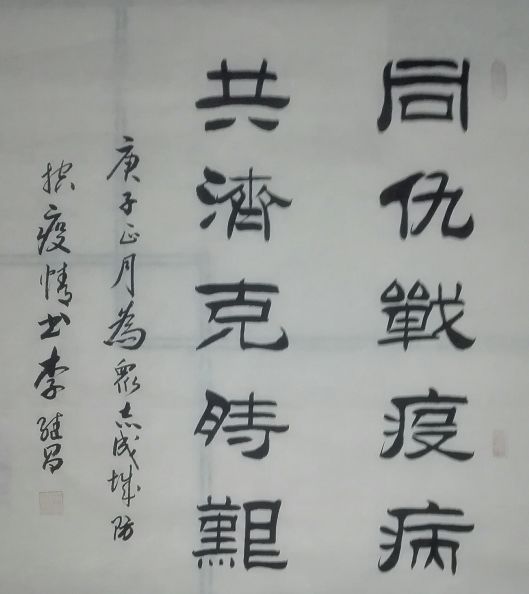 同仇戰疫病
共濟克時艱
庚子正月為眾志成城防
控疫情書李繼昌